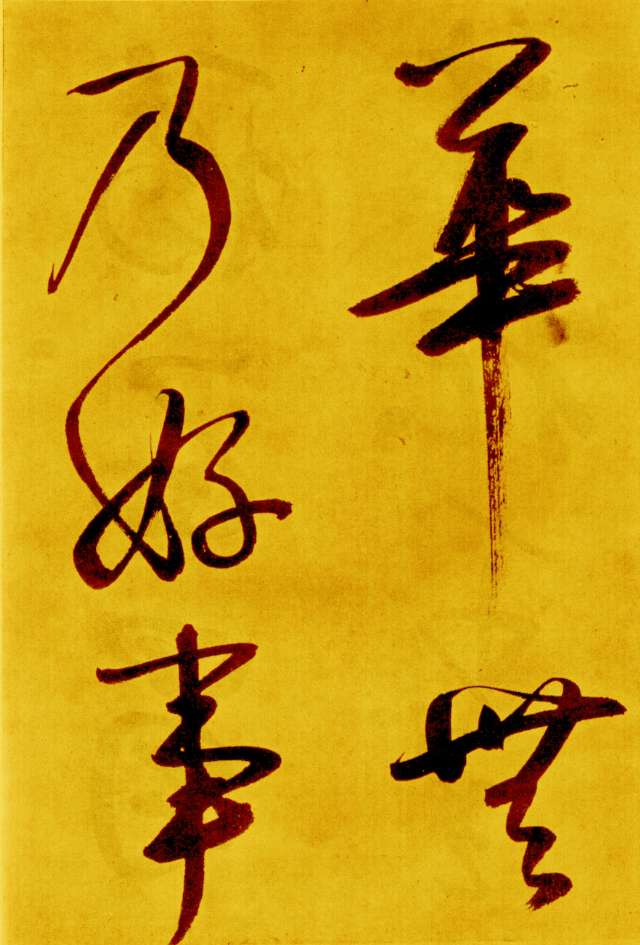 華
乃好事